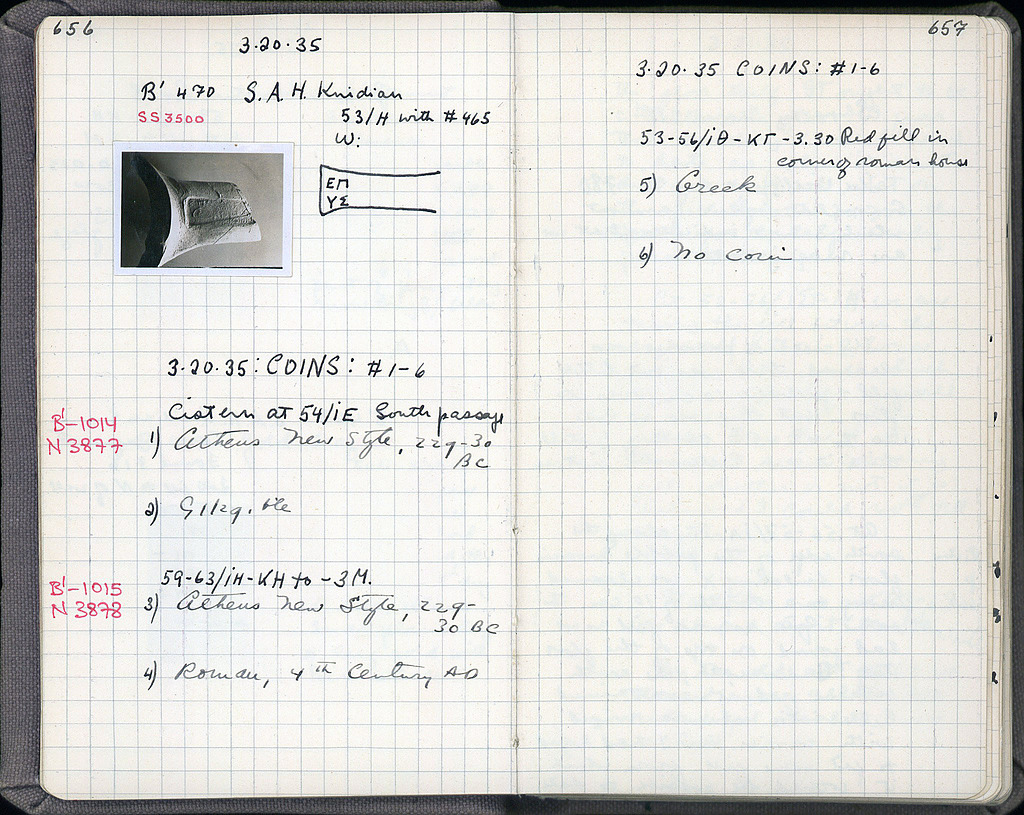 656
3·20·35
B' 470 S.A.H. Knidian
SS 3500
53/H with #465
W:
ΕΠ
ΥΣ
3·20·35: COINS: #1-6
Cistern at 54/ΙΕ South passage
B'-1014
N 3877
1) Athens New Style, 229-30
BC
2)
59-63/ΙΗ-ΚΗ to -3M.
B'-1015
N 3878
3) Athens New Style, 229-
30 BC
4) Roman, 4th Century AD
657
3·20·35 COINS: #1-6
53-56/ΙΘ-ΚΓ -3.30 Red fill in
corner of roman house
5) Greek
6) No coin